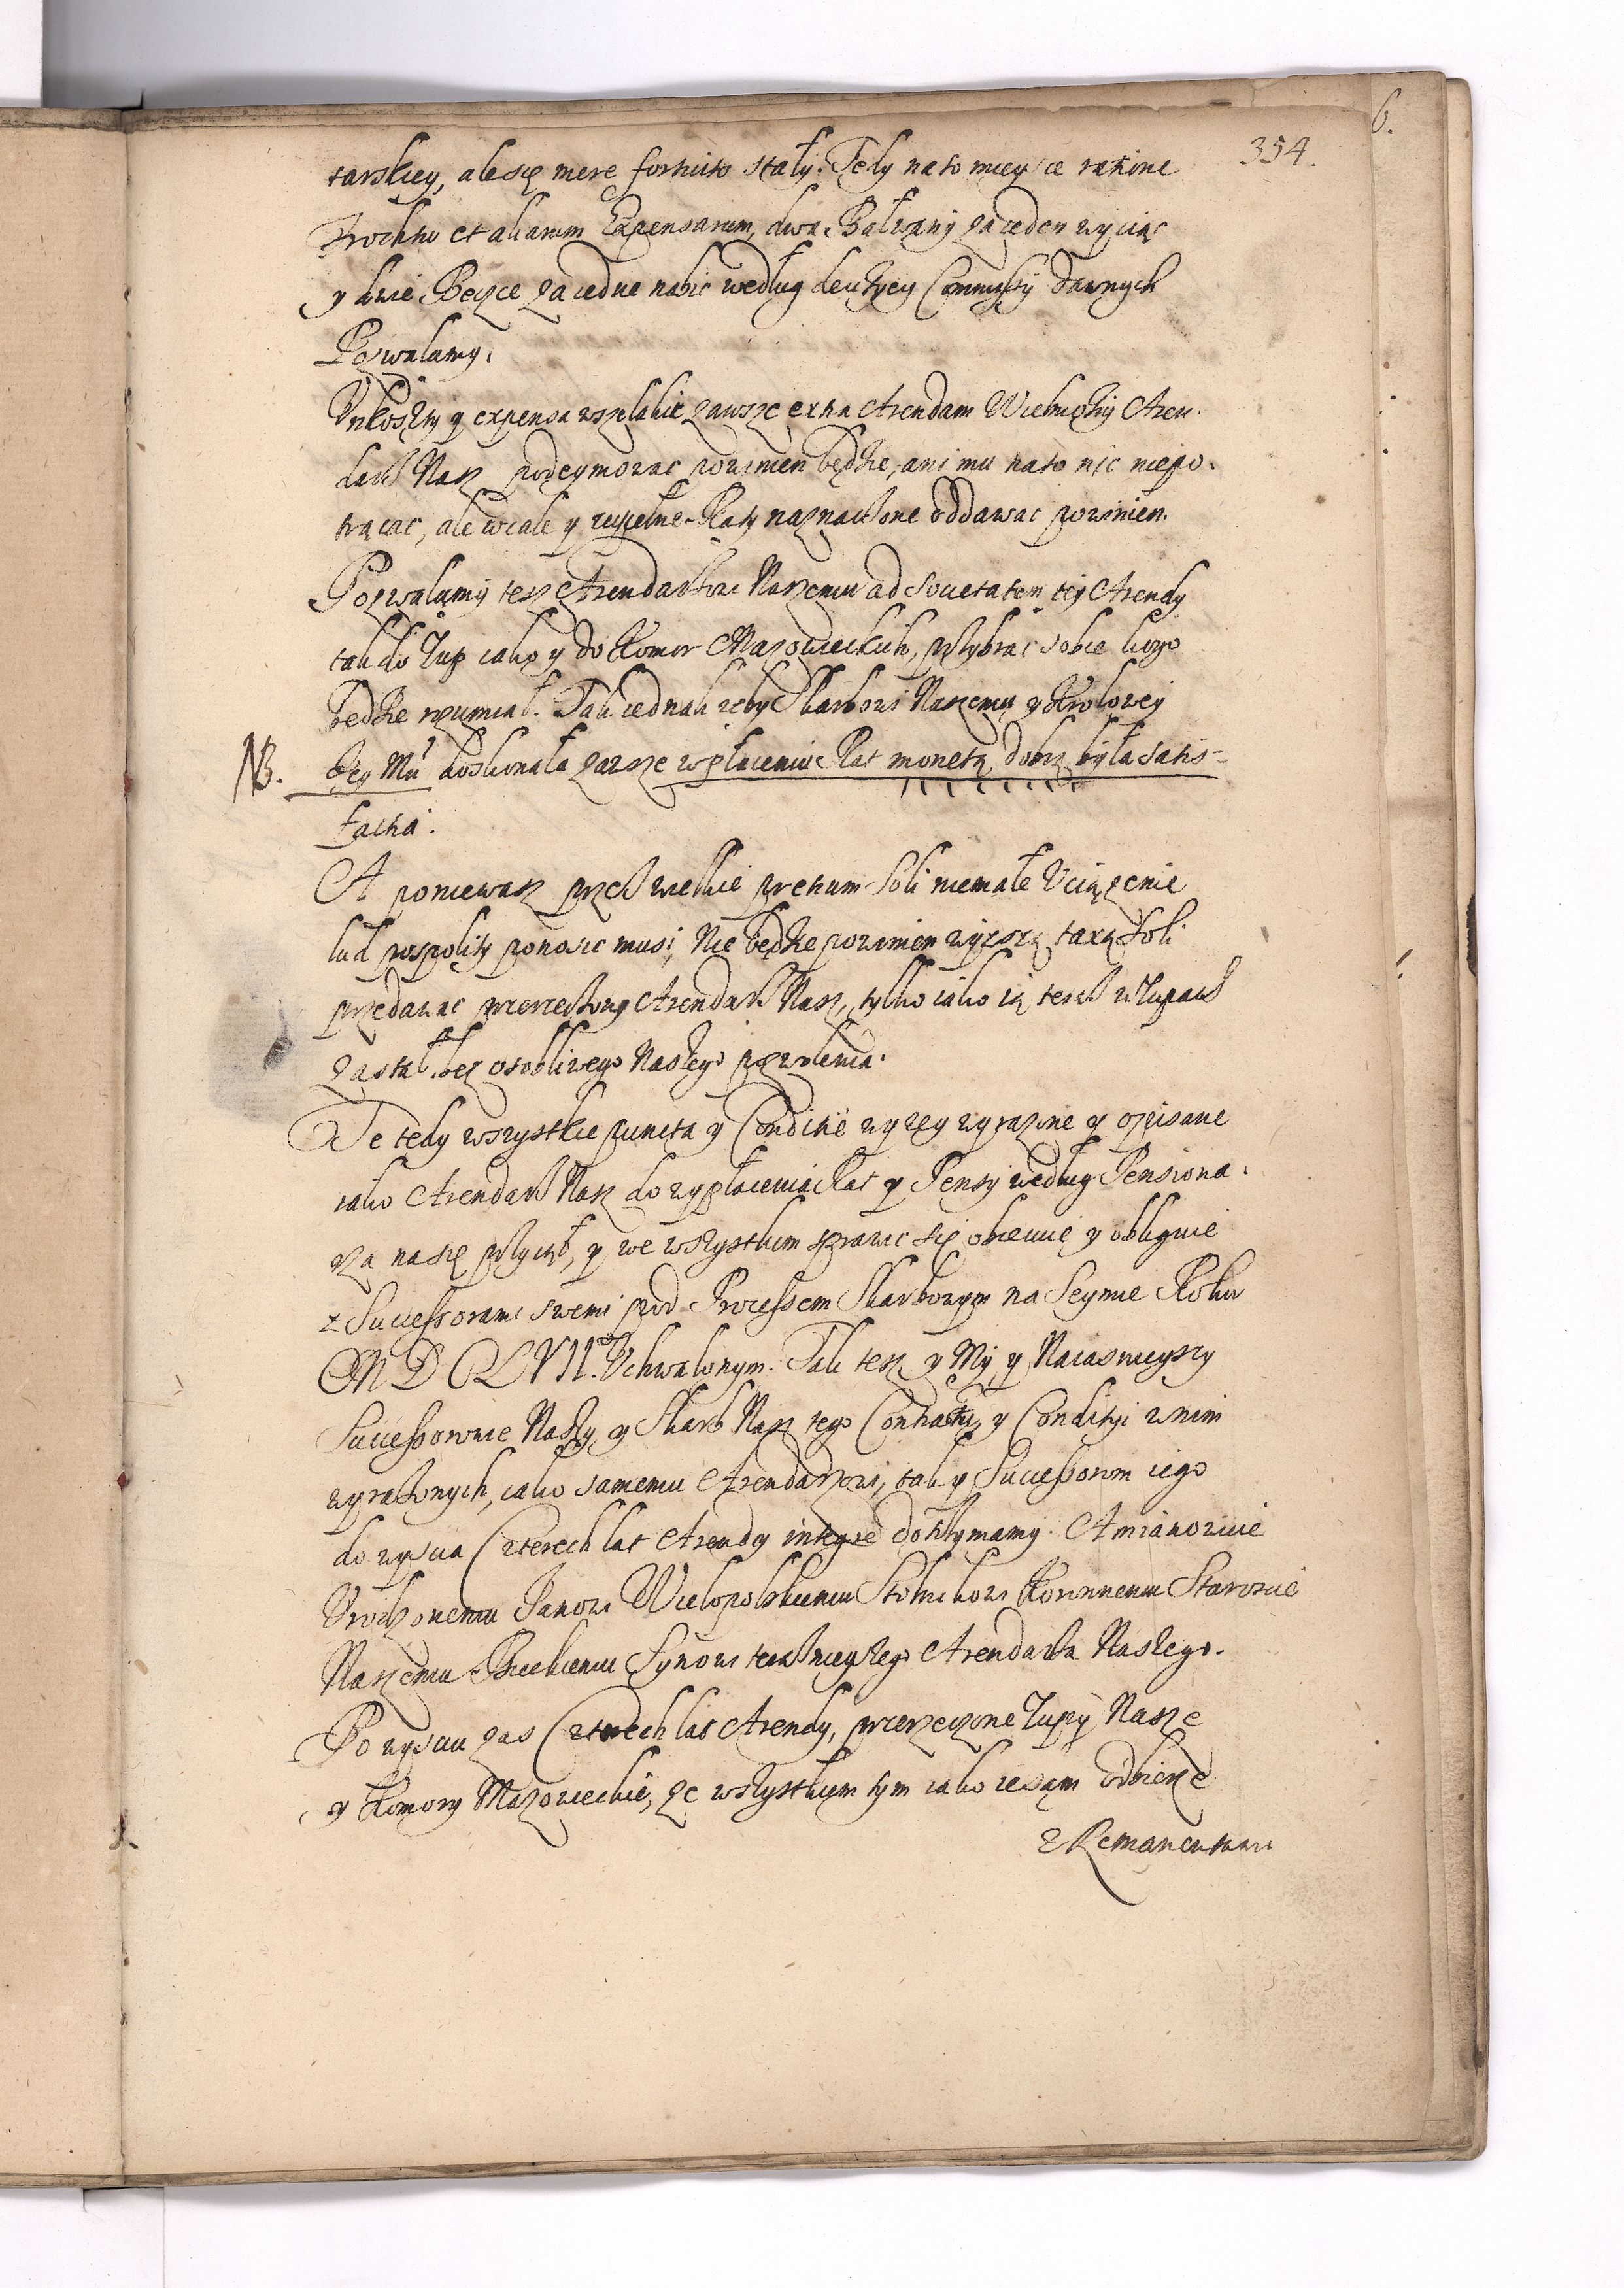 6.
354.
tarskiey, ale się mere fortuito stały. Tedy na to mieysce ratione
Prochu et aliarum Expensarum, dwa Bałwany za ieden wyciąć
y dwie Beczce za iedne nabić według Commissiy dawnych
Pozwalamy.
Vnkoszty y expensa wszelakie zawsze extra Arendam Wielmożny Aren-
darz Nasz podeymować powinien będzie, ani mu na to nic niepo-
trącać, ale wcale y zupełne Raty naznaczone oddawać powinien.
Pozwalamy tesz Arendarzowi Naszemu ad Societatem tey Arendy
tak do Żup iako y do Komor Mazowieckich, przybrać sobie kogo
będzie rozumiał. Tak iednak żeby Skarbowi Naszemu y Krolowey
NB. Jey Mci doskonała zawsze w płaceniu Rat monetą dobrą była satis-
factia.
A poniewasz przez wielkie pretium Soli niemałe Vciążenie
lud pospolity ponosić musi, Nie będzie powinien wyższą taxą Soli
przedawać przerzeczony Arendarz Nasz, tylko iako ią teraz w Żupach
zastał, bez osobliwego Naszego pozwolenia.
Te tedy wszystkie puncta y Conditie wyżey wyrażone y opisane
iako Arendarz Nasz do wypłacenia Rat y Pensy według Pensiona-
rza na się przyiął, y we wszystkim sprawić się obiecuie y obliguie
z Successorami swemi pod Processem Skarbowym na Seymie Roku
MDCLVII. Vchwalonym. Tak tesz y My, y Naiasnieyszy
Successorowie Naszy, y Skarb Nasz tego Contractu, y Conditiy w nim
wyrażonych, iako samemu Arendarzowi, tak y Successorom iego
do wyscia Czterech lat Arendy integre dotrzymamy. A mianowicie
Vrodzonemu Janowi Wielopolskiemu Stolnikowi Koronnemu Staroscie
Naszemu Bieckiemu Synowi teraznieyszego Arendarza Naszego.
Po wysciu zas Czterech lat Arendy, przerzeczone Żupy Nasze
y Komory Mazowieckie, ze wszystkiem tym iako ie sam odbierze
z Remanentami